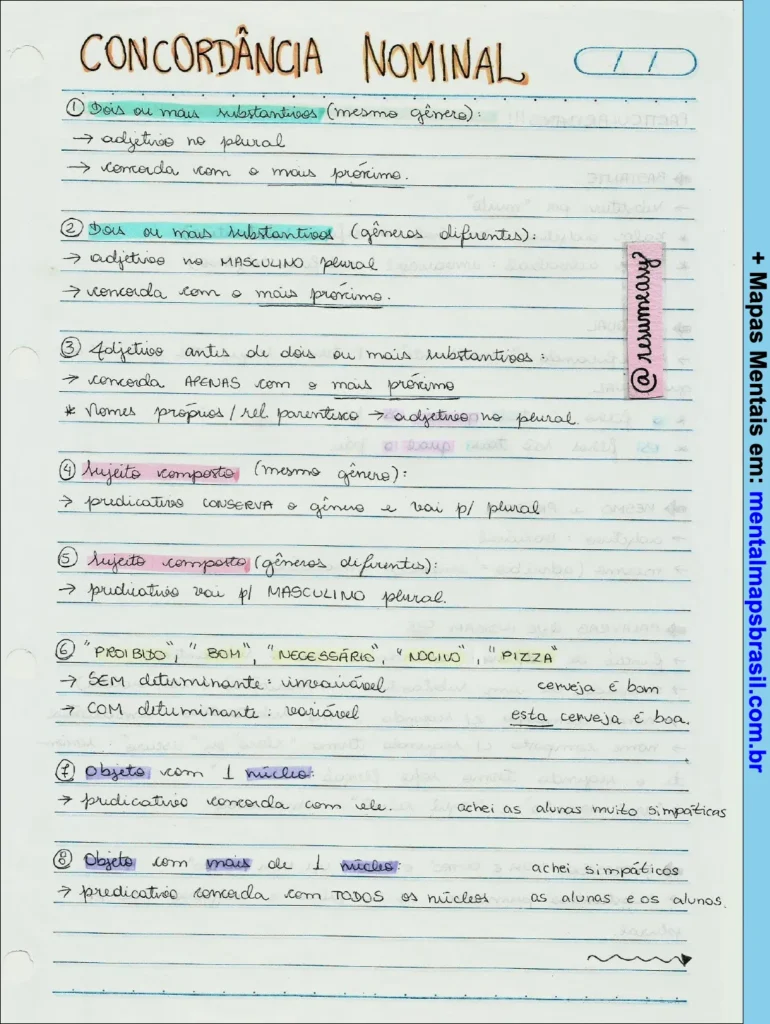 CONCORDÂNCIA NOMINAL / /
① Dois ou mais substantivos (mesmo gênero):
→ adjetivo no plural
→ concorda com o mais próximo.
② Dois ou mais substantivos (gêneros diferentes):
→ adjetivo no MASCULINO plural
→ concorda com o mais próximo.
@resumeasy
③ Adjetivo antes de dois ou mais substantivos:
→ concorda APENAS com o mais próximo
* Nomes próprios / rel. parentesco → adjetivo no plural.
④ Sujeito composto (mesmo gênero):
→ predicativo CONSERVA o gênero e vai p/ plural
⑤ Sujeito composto (gêneros diferentes):
→ predicativo vai p/ MASCULINO plural.
⑥ "PROIBIDO", "BOM", "NECESSÁRIO", "NOCIVO", "PIZZA"
→ SEM determinante: invariável cerveja é bom
→ COM determinante: variável esta cerveja é boa.
⑦ Objeto com 1 núcleo:
→ predicativo concorda com ele. achei as alunas muito simpáticas
⑧ Objeto com mais de 1 núcleo: achei simpáticos
→ predicativo concorda com TODOS os núcleos as alunas e os alunos.
+ Mapas Mentais em: mentalmapsbrasil.com.br